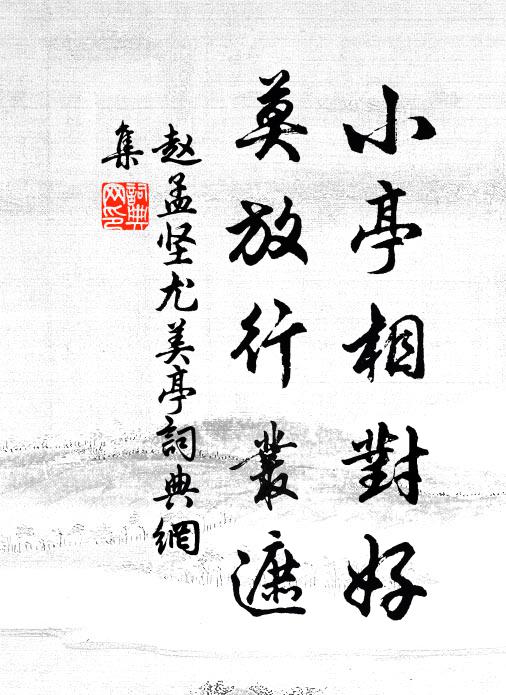 小亭相對好
莫放行叢遮
赵孟坚尤美亭詞典網
集
詞典網印